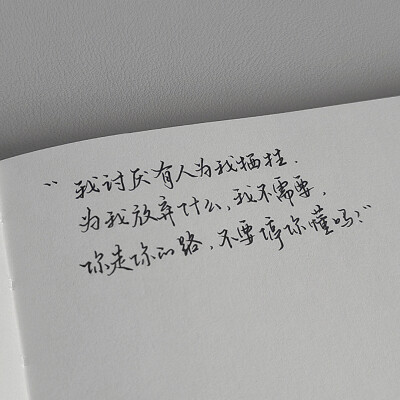 “我讨厌有人为我牺牲.
为我放弃什么,我不需要,
你走你的路,不要停你懂吗?”